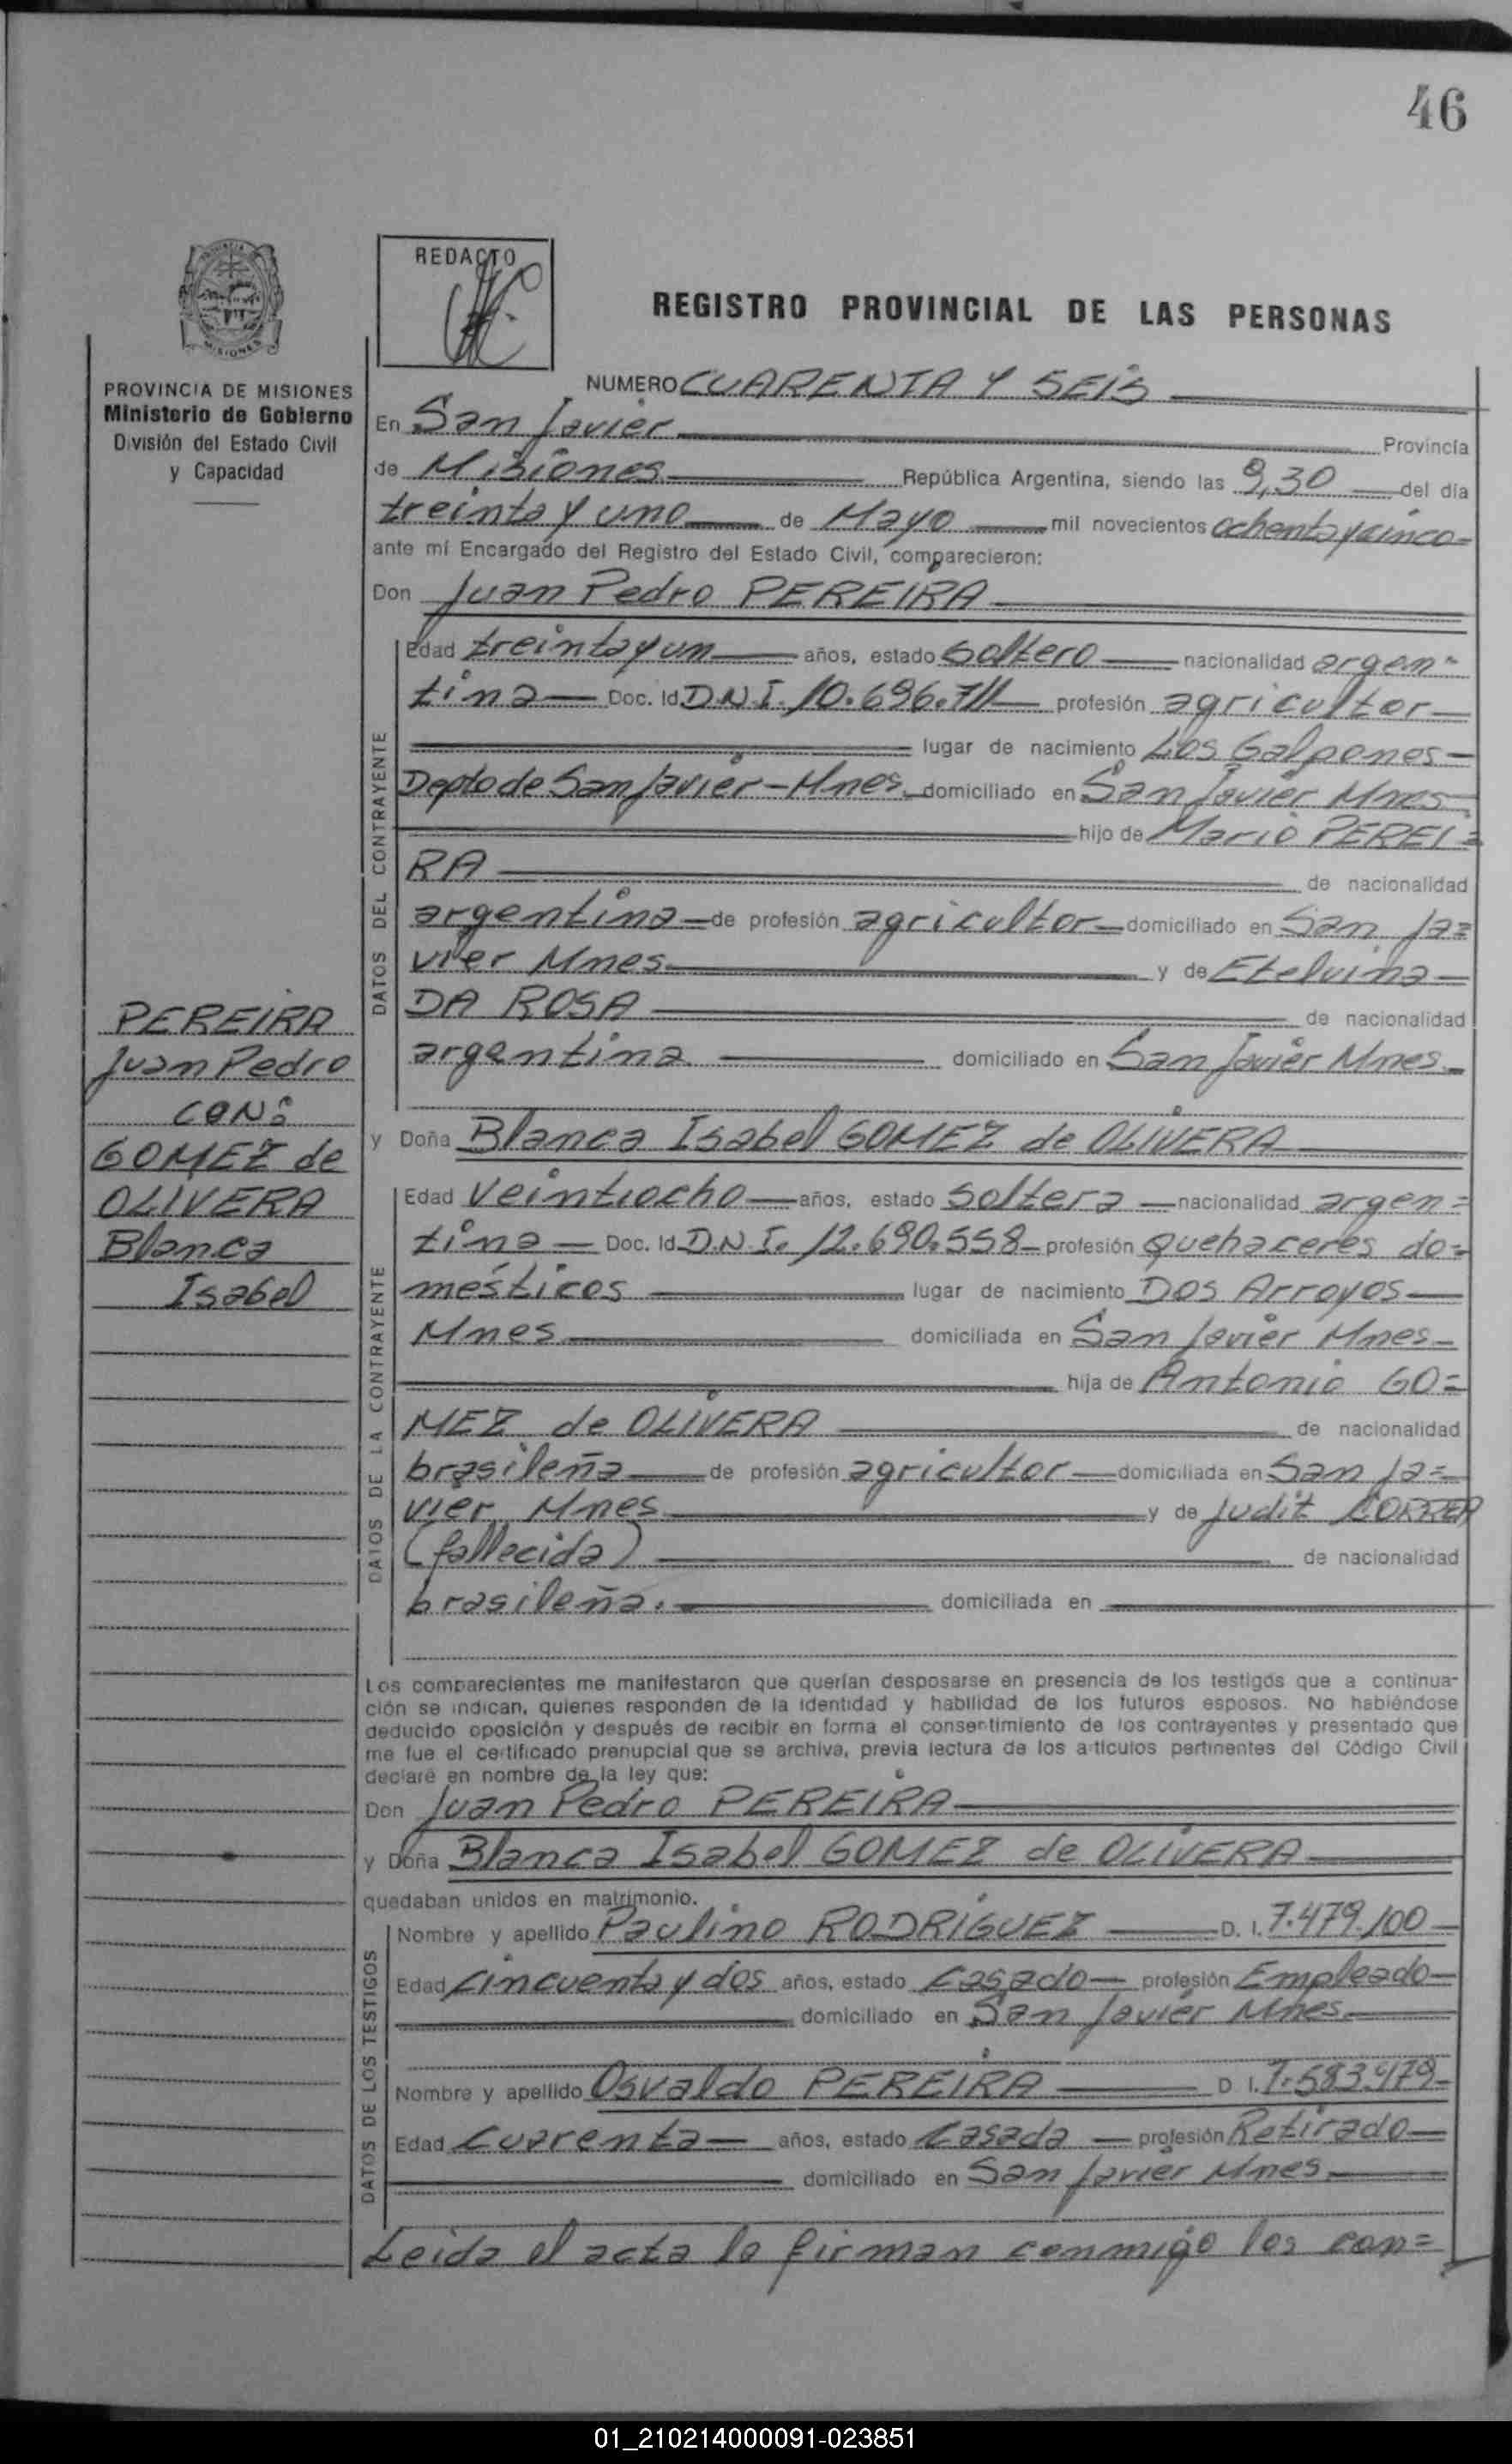 46
REDACTO
REGISTRO PROVINCIAL DE LAS PERSONAS
PROVINCIA DE MISIONES
Ministerio de Gobierno
División del Estado Civil
y Capacidad
NUMERO CUARENTA Y SEIS
En San Javier Provincia
de Misiones República Argentina, siendo las 9,30 del día
treinta y uno de Mayo mil novecientos ochenta y cinco
ante mí Encargado del Registro del Estado Civil, comparecieron:
Don Juan Pedro PEREIRA
DATOS DEL CONTRAYENTE
Edad treinta y un años, estado soltero nacionalidad argen-
tina Doc. Id. D.N.I. 10.696.711 profesión agricultor
lugar de nacimiento Los Galpones-
Depto de San Javier-Mnes domiciliado en San Javier Mnes
hijo de Mario PEREI=
RA de nacionalidad
argentina de profesión agricultor domiciliado en San Ja=
vier Mnes y de Etelvina
DA ROSA de nacionalidad
argentina domiciliado en San Javier Mnes
PEREIRA
Juan Pedro
CON:
GOMEZ de
OLIVERA
Blanca
Isabel
y Doña Blanca Isabel GOMEZ de OLIVERA
DATOS DE LA CONTRAYENTE
Edad veintiocho años, estado soltera nacionalidad argen=
tina Doc. Id. D.N.I. 12.690.558 profesión quehaceres do=
mésticos lugar de nacimiento Dos Arroyos
Mnes domiciliada en San Javier Mnes
hija de Antonio GO=
MEZ de OLIVERA de nacionalidad
brasileña de profesión agricultor domiciliada en San Ja=
vier Mnes y de Judit CORREA
(fallecida) de nacionalidad
brasileña. domiciliada en
Los comparecientes me manifestaron que querían desposarse en presencia de los testigos que a continua-
ción se indican, quienes responden de la identidad y habilidad de los futuros esposos. No habiéndose
deducido oposición y después de recibir en forma el consentimiento de los contrayentes y presentado que
me fue el certificado prenupcial que se archiva, previa lectura de los artículos pertinentes del Código Civil
declaré en nombre de la ley que:
Don Juan Pedro PEREIRA
y Doña Blanca Isabel GOMEZ de OLIVERA
quedaban unidos en matrimonio.
DATOS DE LOS TESTIGOS
Nombre y apellido Paulino RODRIGUEZ D. I. 7.479.100
Edad cincuenta y dos años, estado casado profesión Empleado
domiciliado en San Javier Mnes
Nombre y apellido Osvaldo PEREIRA D. I. 7.583.479
Edad cuarenta años, estado casada profesión Retirado
domiciliado en San Javier Mnes
Leida el acta la firman conmigo los con=
01_210214000091-023851